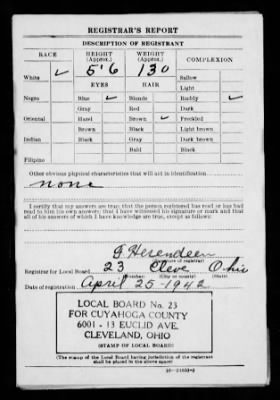 REGISTRAR'S REPORT
DESCRIPTION OF REGISTRANT
RACE HEIGHT (Approx.) WEIGHT (Approx.) COMPLEXION
White ✓ 5'6 130 Sallow
EYES HAIR Light
Negro Blue ✓ Blonde Ruddy ✓
Gray Red Dark
Oriental Hazel Brown ✓ Freckled
Brown Black Light brown
Indian Black Gray Dark brown
Bald Black
Filipino
Other obvious physical characteristics that will aid in identification
none
I certify that my answers are true; that the person registered has read or has had
read to him his own answers; that I have witnessed his signature or mark and that
all of his answers of which I have knowledge are true, except as follows:
Herendeen
(Signature of registrar)
Registrar for Local Board 23 Cleve Ohio
(Number) (City or county) (State)
Date of registration April 25-1942
LOCAL BOARD No. 23
FOR CUYAHOGA COUNTY
6001 - 13 EUCLID AVE.
CLEVELAND, OHIO
(STAMP OF LOCAL BOARD)
(The stamp of the Local Board having jurisdiction of the registrant
shall be placed in the above space)